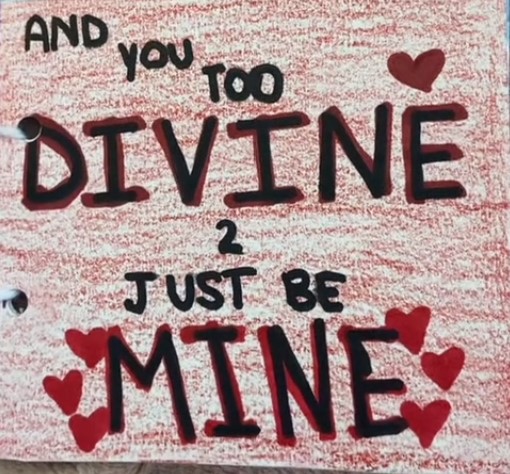 AND YOU TOO
DIVINE
2
JUST BE
MINE